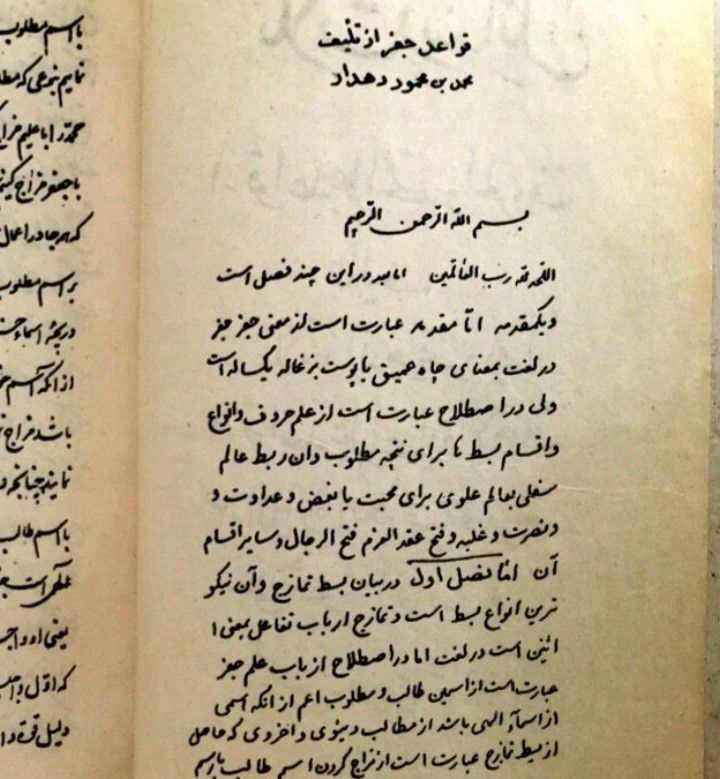 قواعد جفر از تألیف
محمد بن محمود دهدار
بسم الله الرحمن الرحیم
الحمد لله رب العالمین اما بعد در این چند فصل است
ویکمقدمه اما مقدمه عبارت است از معنی جفر جفر
در لغت بمعنای چاه عمیق یا پوست بزغاله یکساله است
ولی در اصطلاح عبارت است از علم حروف وانواع
واقسام بسط ها برای نتیجه مطلوب وان ربط عالم
سفلی بعالم علوی برای محبت یا بغض و عداوت و
ونصرت و غلبه و فتح عقد العزم فتح الرجال وسایر اقسام
آن اما فصل اول در بیان بسط تمازج وآن نیکو
ترین انواع بسط است و تمازج از باب تفاعل بمعنی ا
اثنین است در لغت اما در اصطلاح ارباب علم جفر
عبارتست از اسمین طالب و مطلوب اعم از انکه اسمی
از اسمآء الهی باشد از مطالب دینوی و اخروی که حاصل
از بسط تمازج عبارت است از مزاج کردن اسم طالب باسم
باسم مطلوب
نمایم بنوعی که
با
که هرجا در اعمال
بر اسم مطلوب
از انکه اسم
باشد مزاج
نمایند چنانچه
باسم طالب
یعنی او
که اول
دلیل